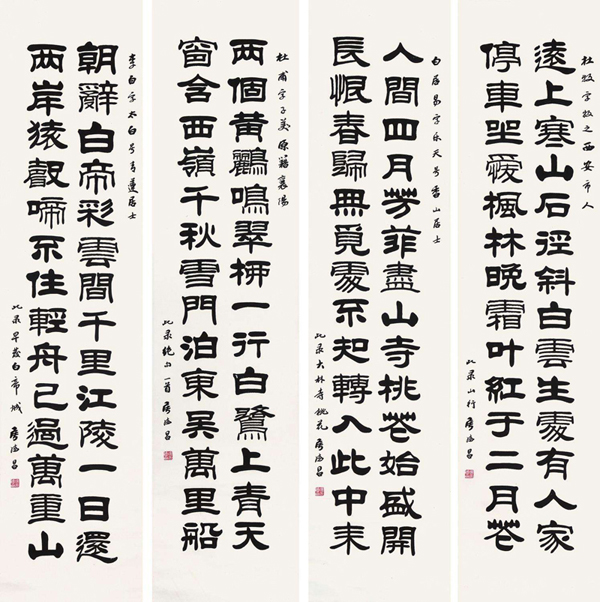 杜牧字牧之西安市人
遠上寒山石徑斜白雲生處有人家
停車坐愛楓林晚霜叶紅于二月花
此录山行
白居易字乐天号香山居士
人間四月芳菲盡山寺桃花始盛開
長恨春歸無覓處不知轉入此中来
此录大林寺桃花
杜甫字子美原籍襄陽
两個黄鸝鳴翠柳一行白鷺上青天
窗含西嶺千秋雪門泊東吴萬里船
此录绝句一首
李白字太白号青蓮居士
朝辭白帝彩雲間千里江陵一日還
两岸猿聲啼不住輕舟已過萬重山
此录早發白帝城